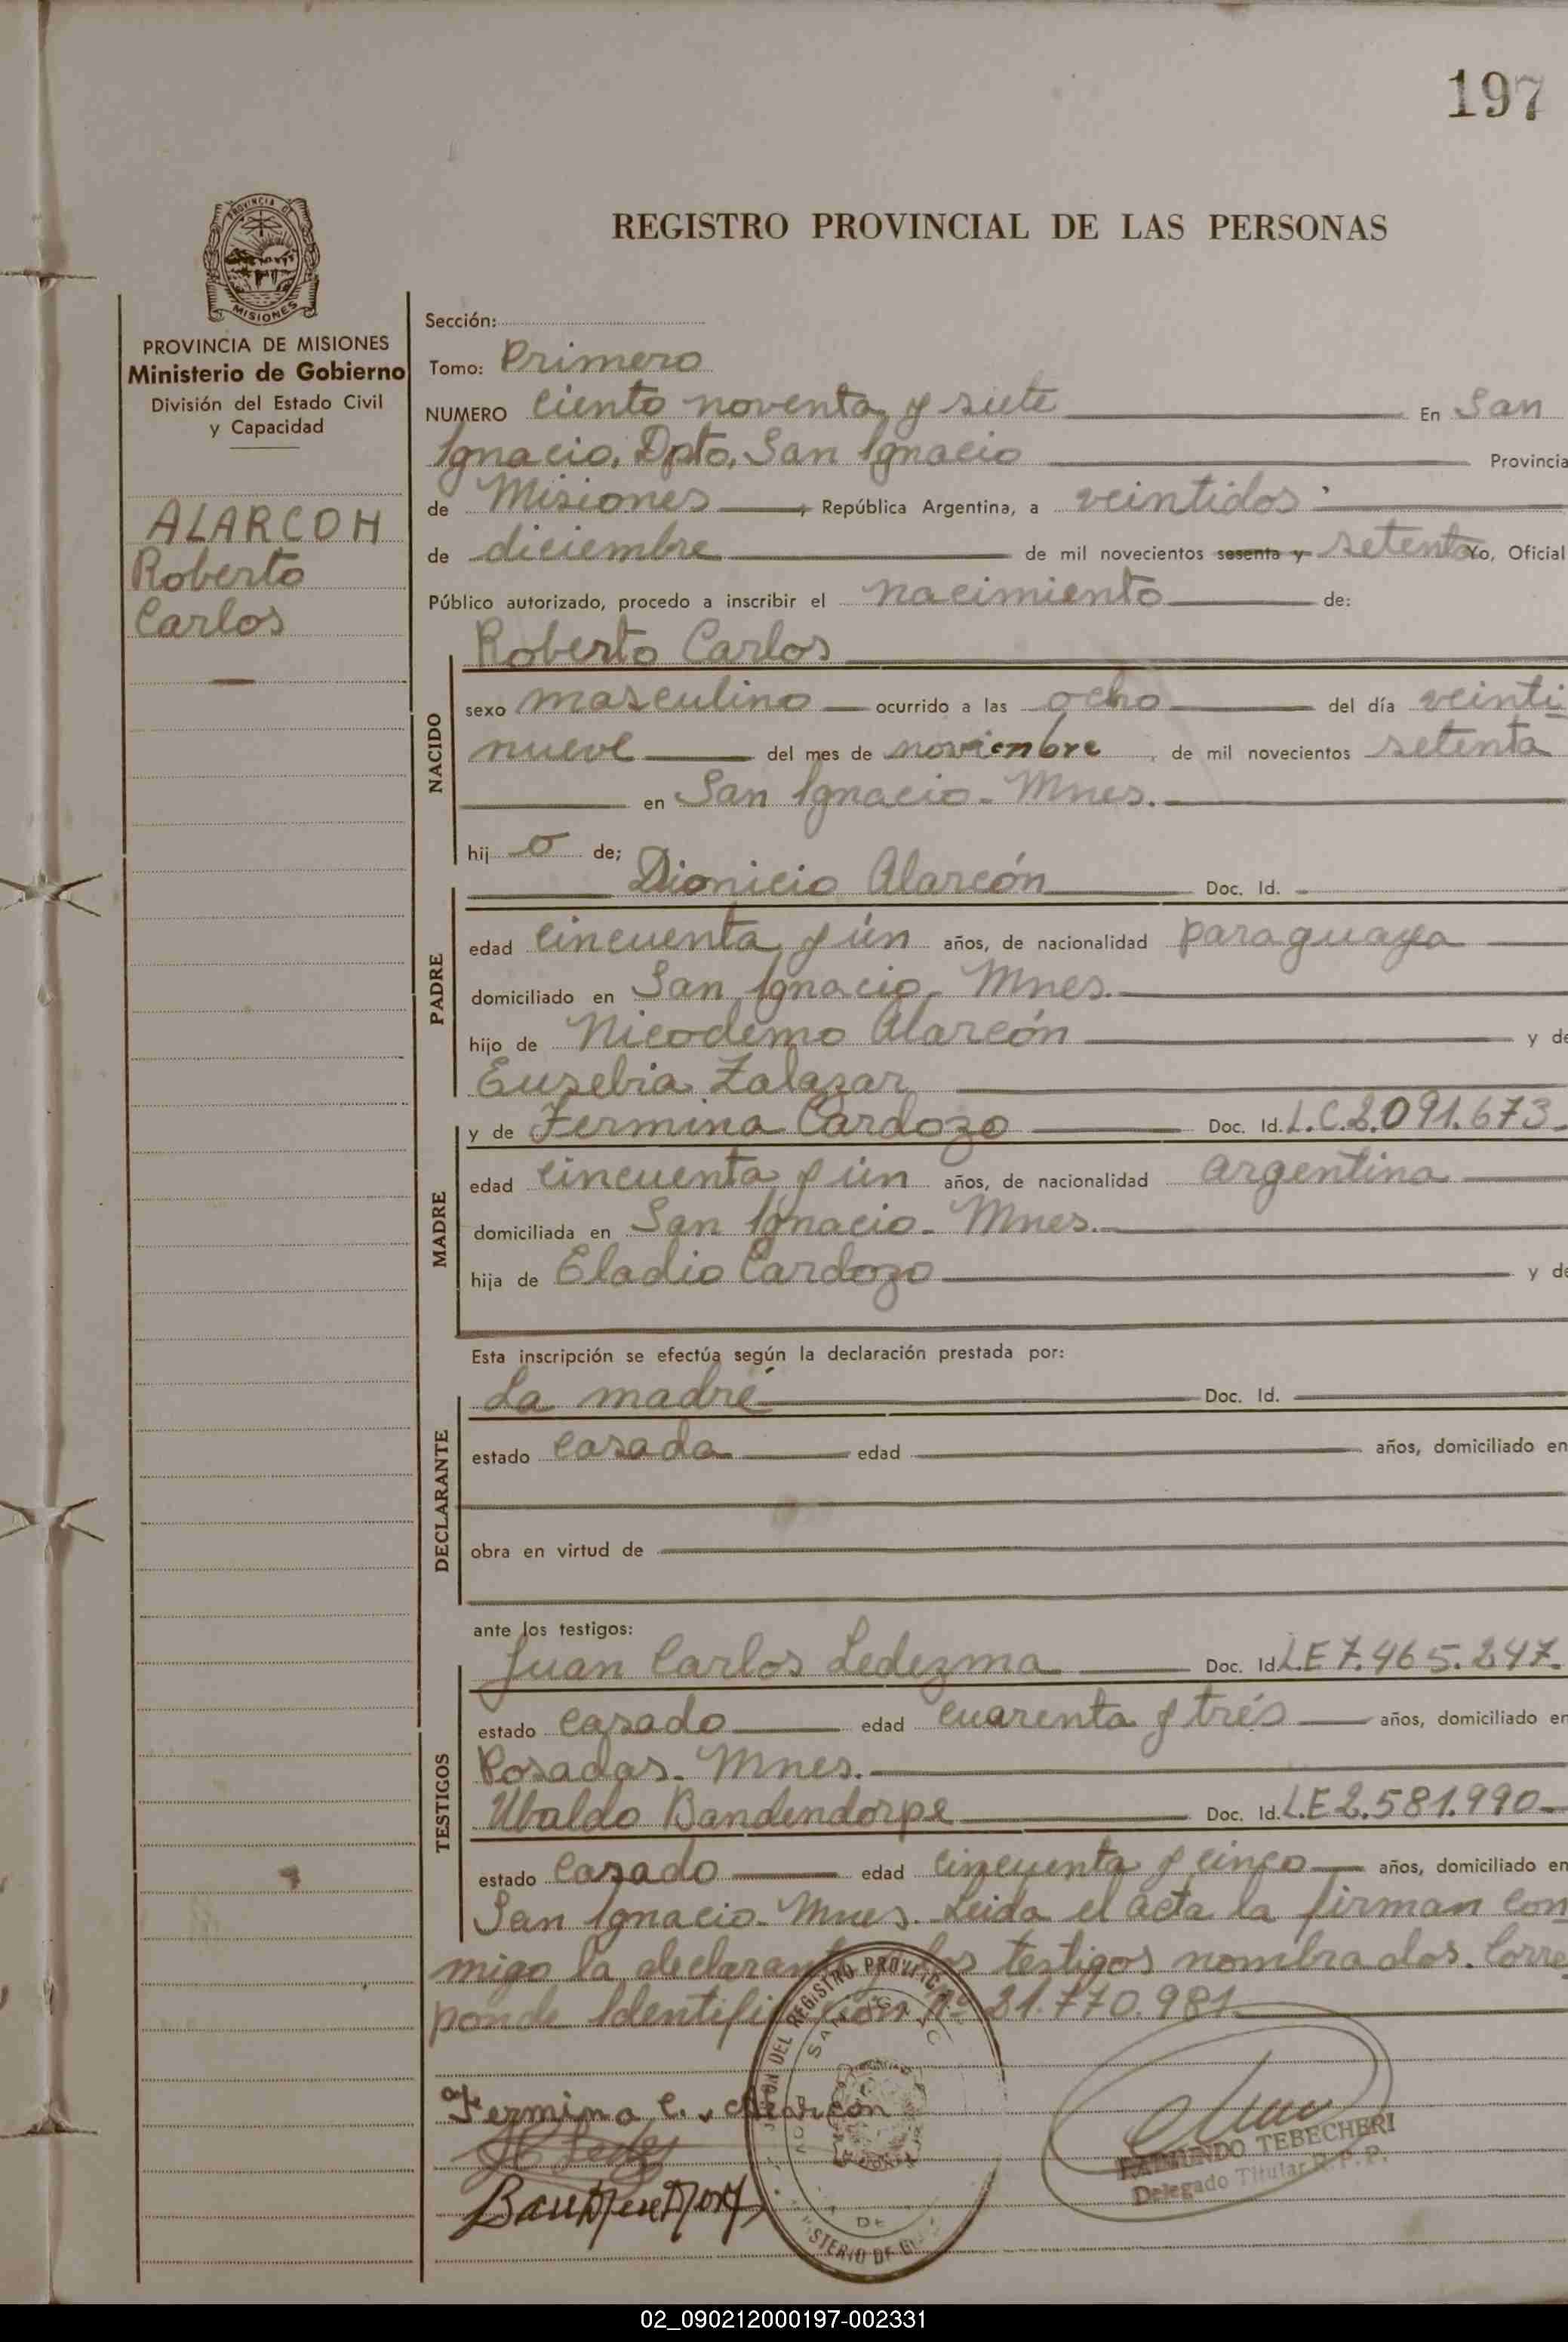 197
PROVINCIA DE
MISIONES
REGISTRO PROVINCIAL DE LAS PERSONAS
PROVINCIA DE MISIONES
Ministerio de Gobierno
División del Estado Civil
y Capacidad
ALARCON
Roberto
Carlos
Sección:
Tomo: Primero
NUMERO Ciento noventa y siete En San
Ignacio, Dpto. San Ignacio Provincia
de Misiones, República Argentina, a veintidos
de diciembre de mil novecientos sesenta y setenta Yo, Oficial
Público autorizado, procedo a inscribir el nacimiento de:
NACIDO
Roberto Carlos
sexo masculino ocurrido a las ocho del día veinti
nueve del mes de noviembre, de mil novecientos setenta
en San Ignacio - Mnes.
hij o de;
PADRE
Dionicio Alarcón Doc. Id.
edad cincuenta y ún años, de nacionalidad paraguaya
domiciliado en San Ignacio - Mnes.
hijo de Nicodemo Alarcón y de
Eusebia Zalazar
MADRE
y de Fermina Cardozo Doc. Id. L.C.2.091.673-
edad cincuenta y ún años, de nacionalidad argentina
domiciliada en San Ignacio - Mnes.
hija de Eladio Cardozo y de
Esta inscripción se efectúa según la declaración prestada por:
DECLARANTE
La madre Doc. Id.
estado casada edad años, domiciliado en
obra en virtud de
ante los testigos:
TESTIGOS
Juan Carlos Ledezma Doc. Id. L.E 7.465.247.
estado casado edad cuarenta y trés años, domiciliado en
Posadas - Mnes.
Ubaldo Bandendorpe Doc. Id. L.E 2.581.990-
estado Casado edad cincuenta y cinco años, domiciliado en
San Ignacio - Mnes. Leida el acta la firman con
migo la declarante y los testigos nombrados. Corre
ponde Identificación Nº 21.770.981
Fermina C. de Alarcon
RAIMUNDO TEBECHERI
Delegado Titular R. P. P.
02_090212000197-002331